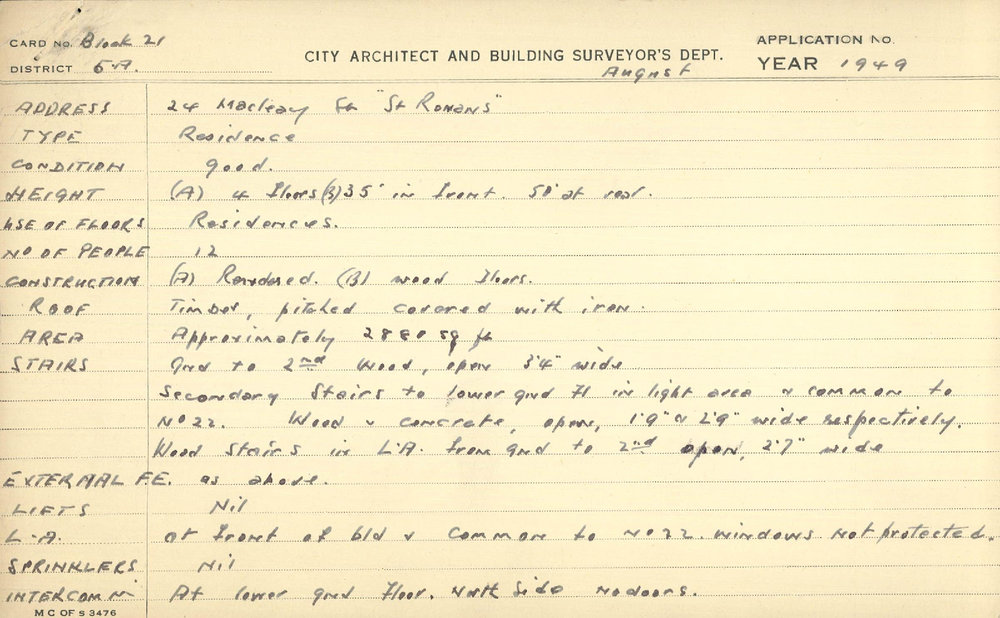 CARD No. Block 21
DISTRICT 5.A.
CITY ARCHITECT AND BUILDING SURVEYOR'S DEPT.
August
APPLICATION No.
YEAR 1949
ADDRESS 24 Macleay St "St Romans"
TYPE Residence
CONDITION good.
HEIGHT (A) 4 floors (B) 35' in front. 50' at rear.
USE OF FLOORS Residences.
No OF PEOPLE 12
CONSTRUCTION (A) Rendered. (B) wood floors.
ROOF Timber, pitched covered with iron.
AREA Approximately 2880 sq ft
STAIRS Gnd to 2nd Wood, open 3'4" wide
Secondary Stairs to lower gnd fl in light area & common to
No 22. Wood & concrete, open, 1'9" & 2'9" wide respectively.
Wood stairs in L.A. from gnd to 2nd open, 2'7" wide
EXTERNAL F.E. as above.
LIFTS Nil
L.A. at front of bld & common to No 22. windows not protected.
SPRINKLERS Nil
INTERCOM N At lower gnd floor. North Side no doors.
M C OF S 3476